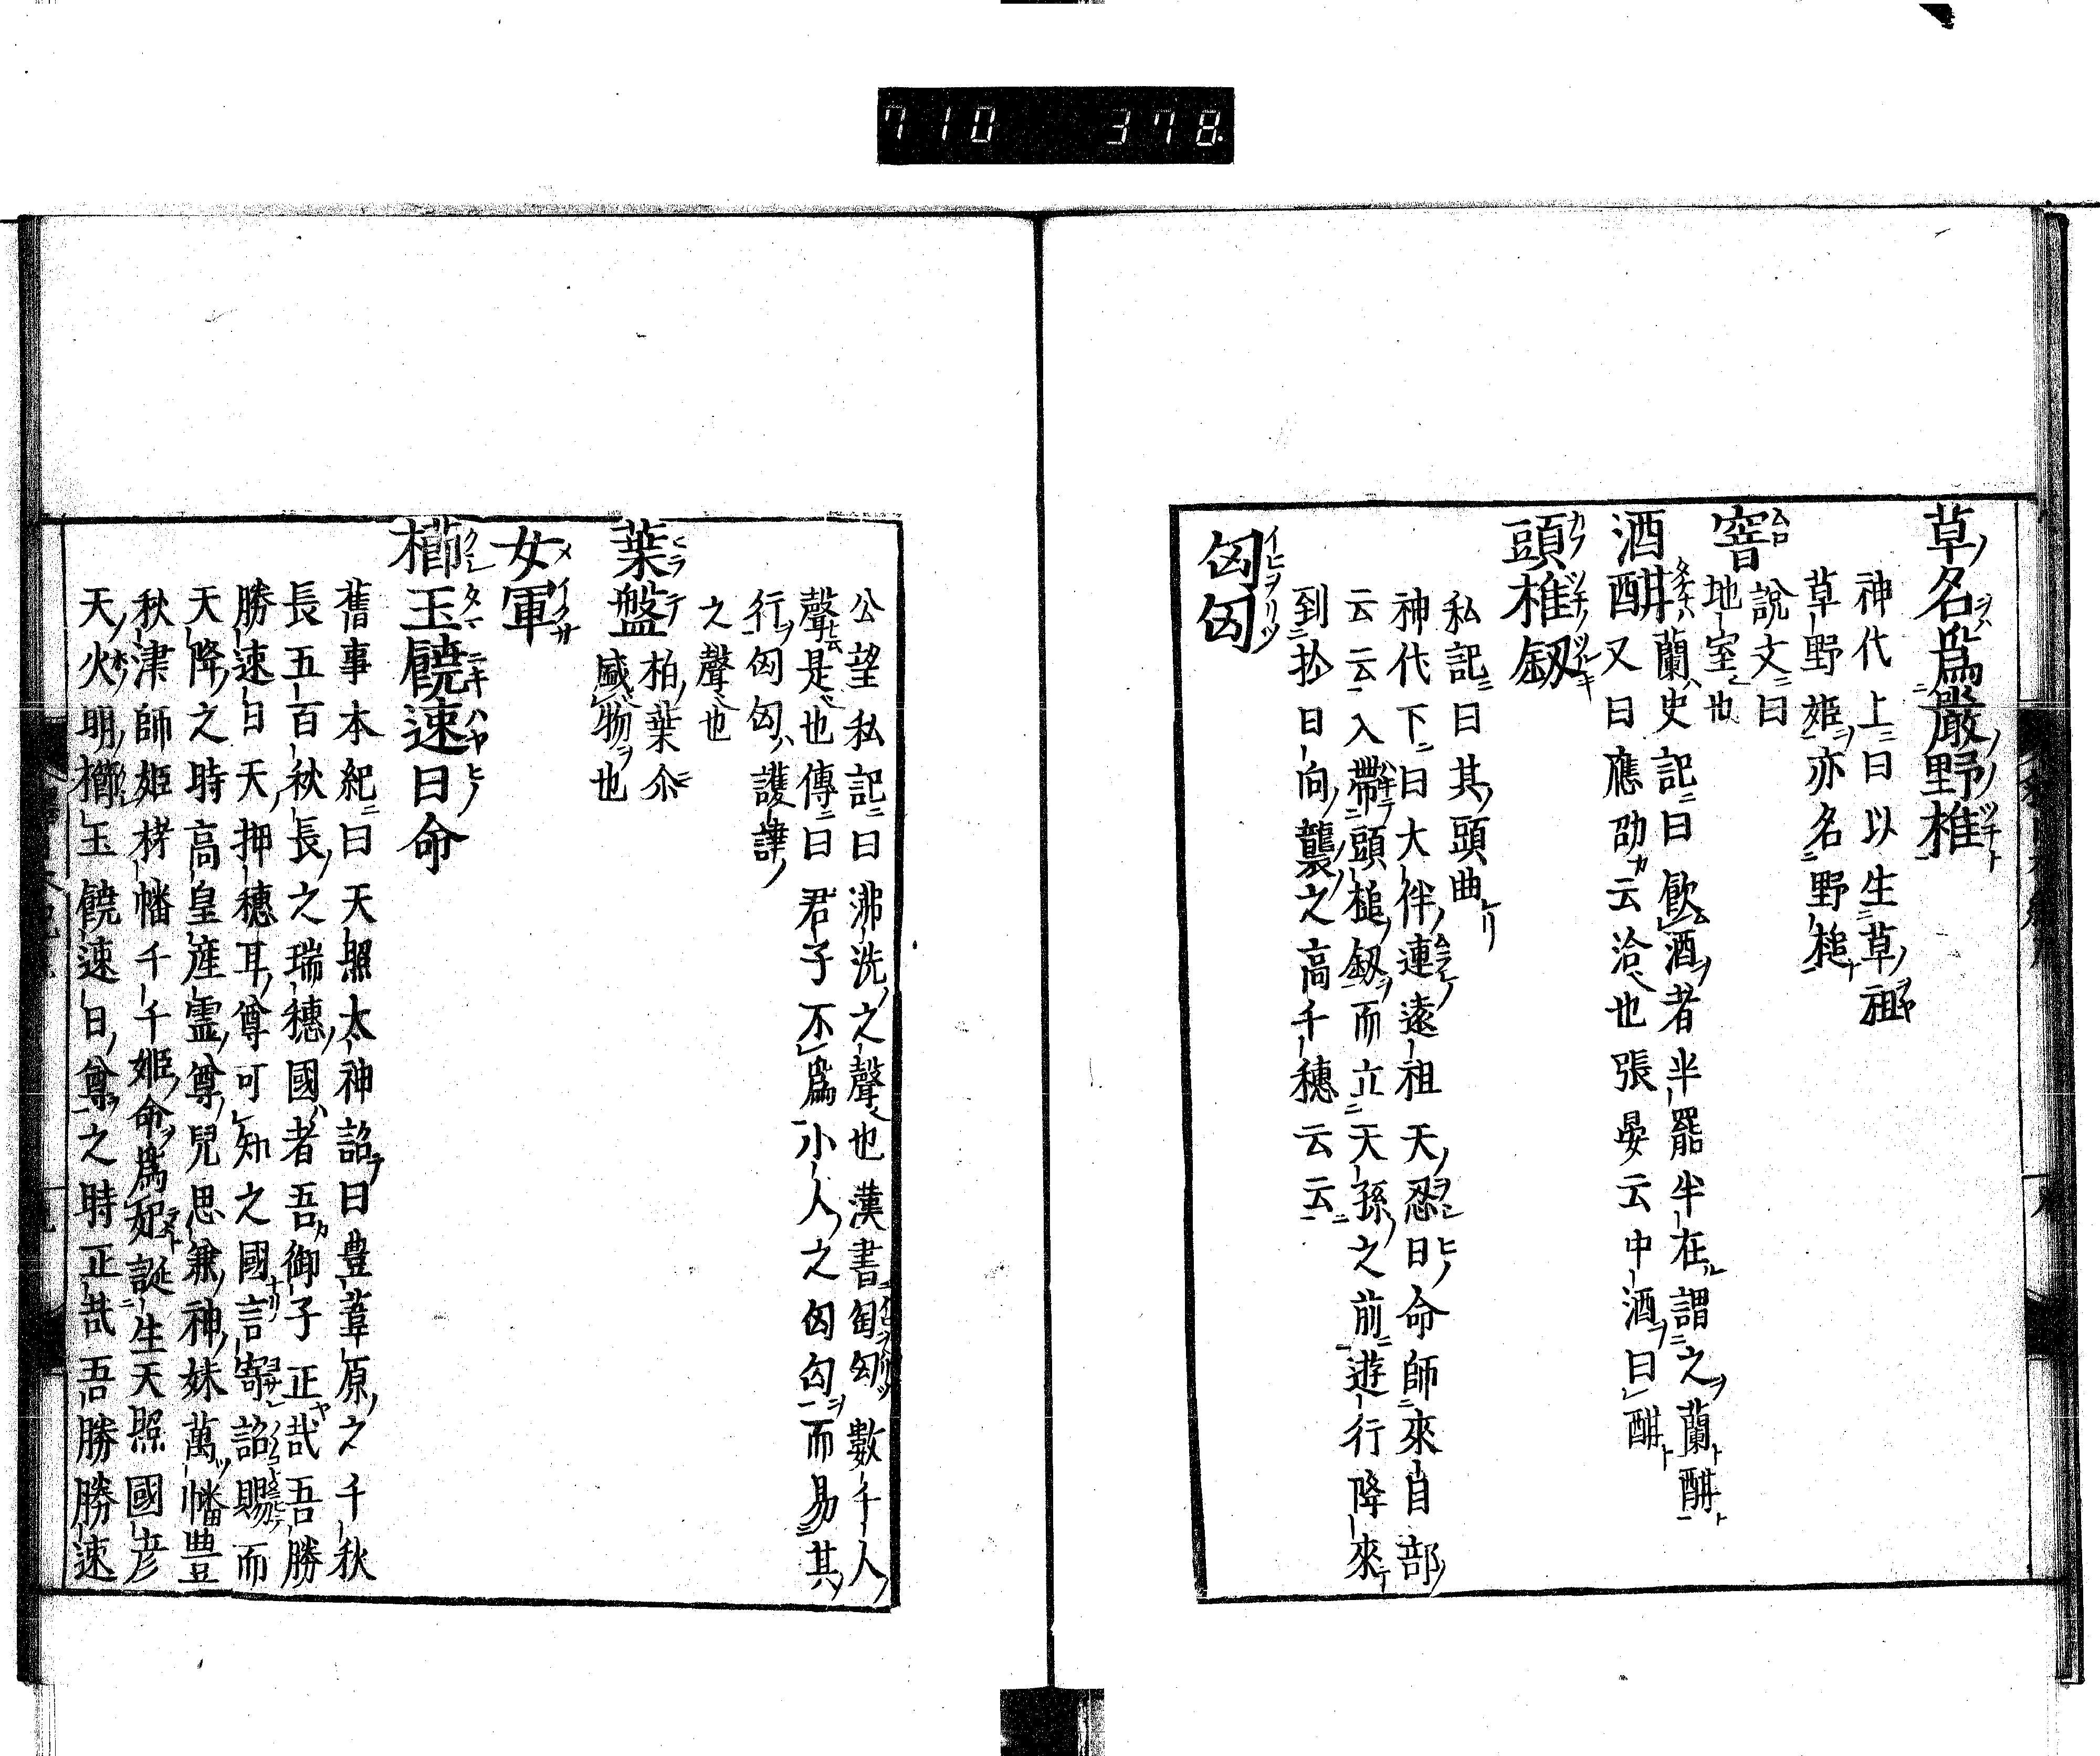 710 378
草名爲嚴野椎
神代上曰以生草祖
草野姫亦名野槌
窨
說文曰
地室也
酒酣
蘭史記曰飲酒者半罷半在謂之蘭酣
又曰應劭云洽也張晏云中酒曰酣
頭椎釼
私記曰其頭曲
神代下曰大伴連遠祖天忍日命師來目部
云云入帶頭槌釼而立天孫之前遊行降來
到於日向襲之高千穗云云
匈匈
公望私記曰沸洗之聲也漢書匈匈數千人
聲是也傳曰君子不爲小人之匈匈而易其
行匈匈護譁
之聲也
葉盤
柏葉介
盛物也
女軍
櫛玉饒速日命
舊事本紀曰天照太神詔曰豊葦原之千秋
長五百秋長之瑞穗國者吾御子正哉吾勝
勝速日天押穗耳尊可知之國言寄詔賜而
天降之時高皇産霊尊兒思兼神妹萬幡豊
秋津師姫栲幡千千姫命爲妃誕生天照國彦
天火明櫛玉饒速日尊之時正哉吾勝勝速